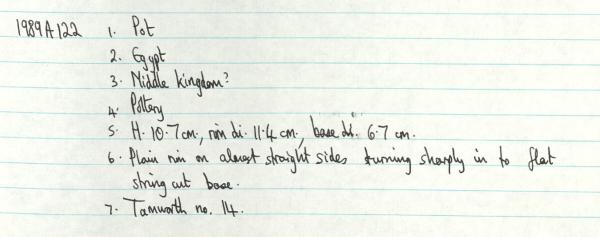 1989A122 1. Pot
2. Egypt
3. Middle kingdom?
4. Pottery
5. H. 10.7 cm., rim di. 11.4 cm., base di. 6.7 cm.
6. Plain rim on almost straight sides turning sharply in to flat
string cut base.
7. Tamworth no. 14.